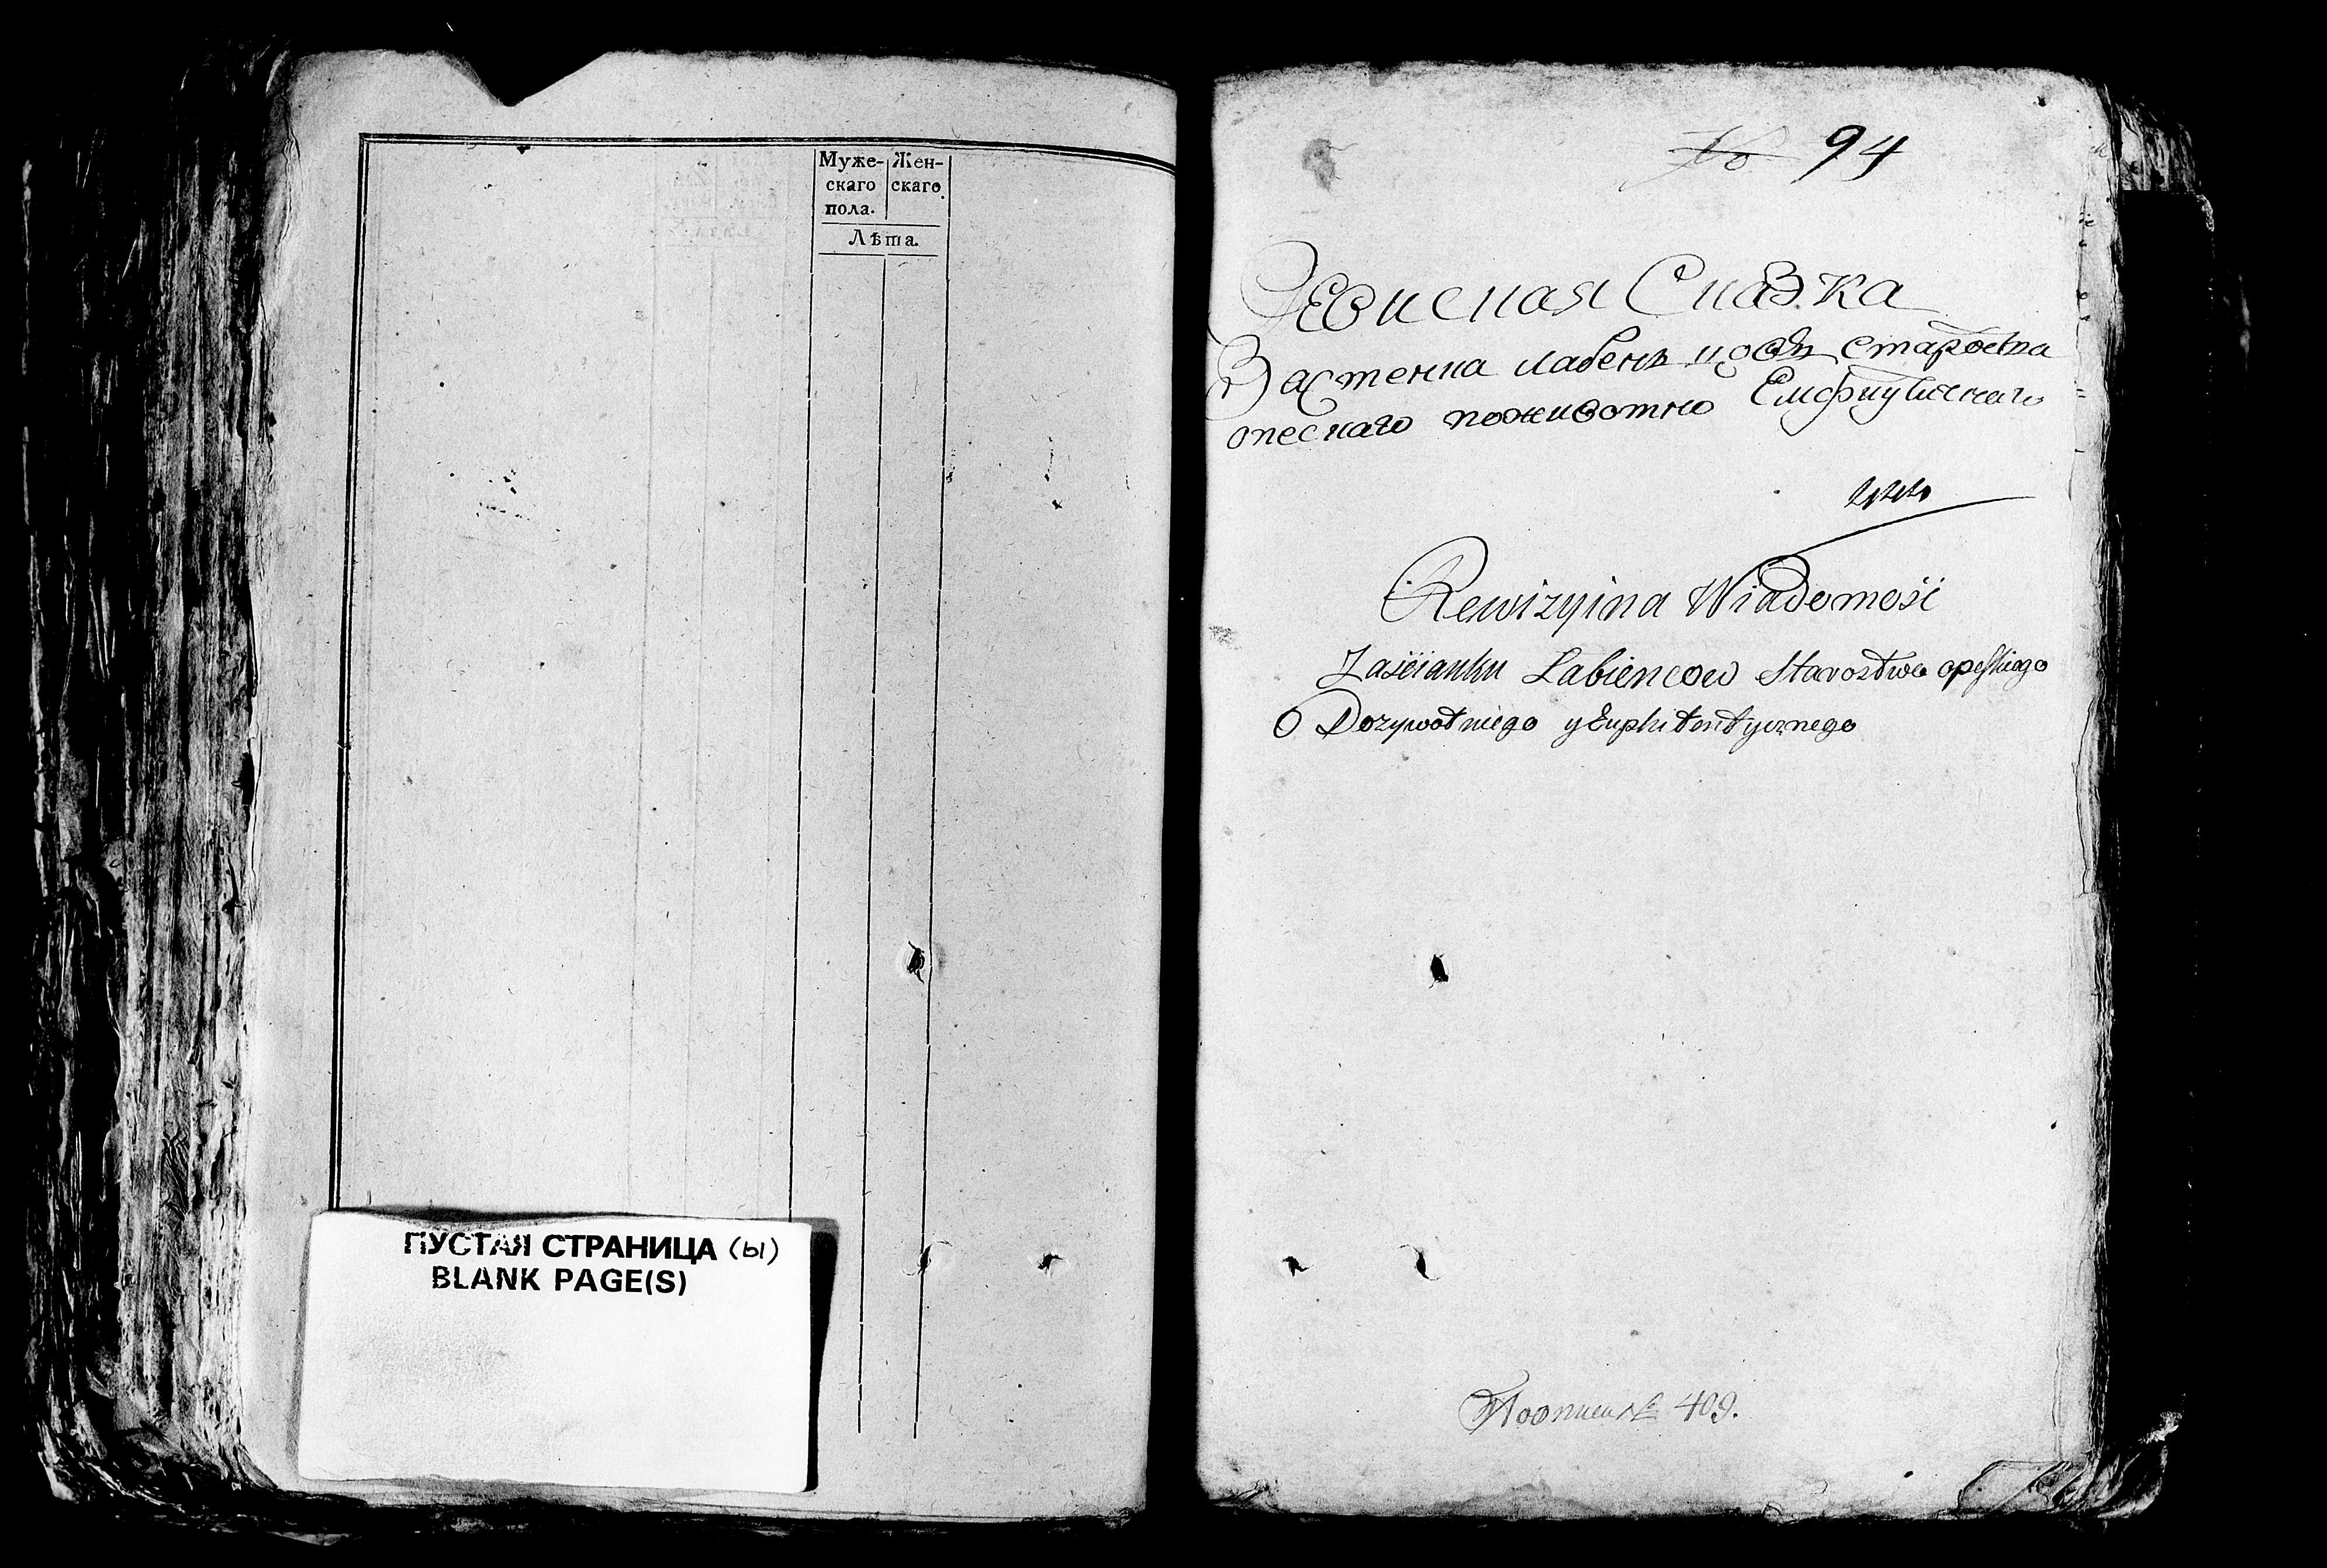 Муже- Жен-
скаго скаго
пола.
Лѣта.
ПУСТАЯ СТРАНИЦА (ы)
BLANK PAGE(S)
№ 94
Ревисная Сказка
Застенка лабенцовъ староства
опескаго поживотно
Rewizyina Wiadomość
Zaścianku Labiencow Starostwa opeskiego
O Dozywotniego y Emphiteutycznego
409.